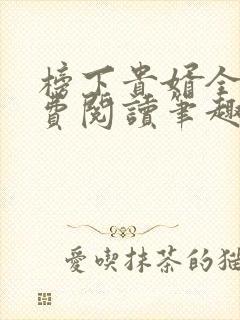 榜下貴婿全
費閱讀筆趣
愛喫抹茶的猫